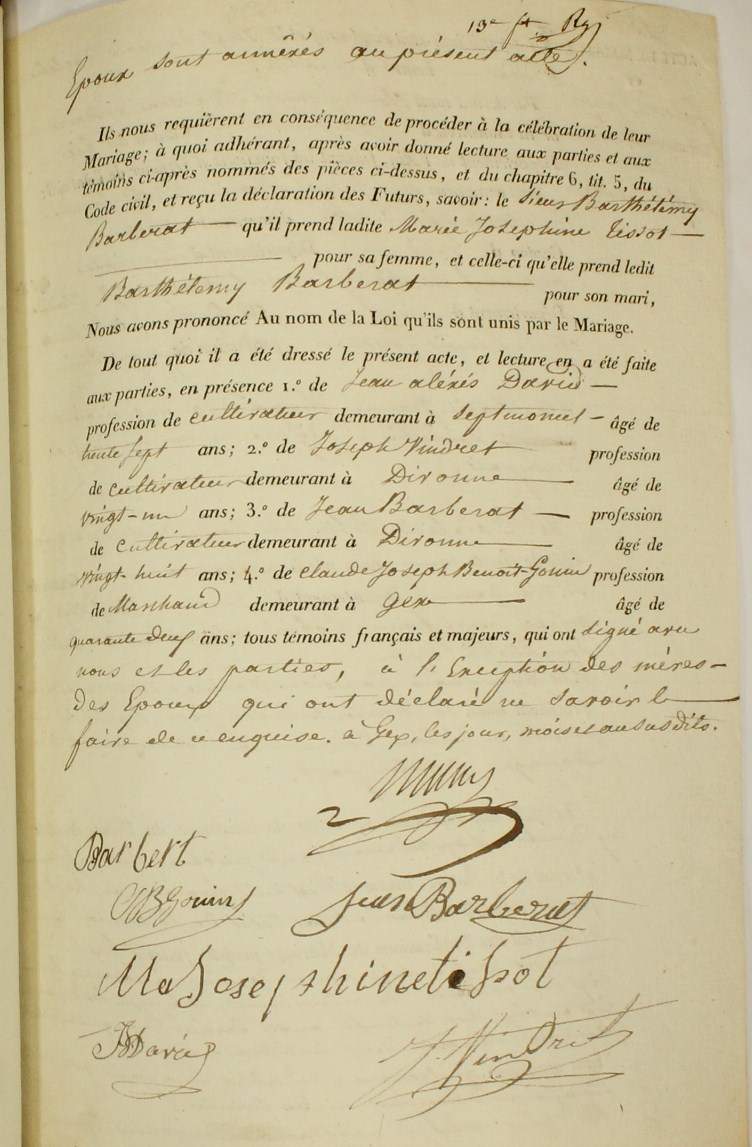 13e ft Rg
Epoux sont annéxés au présent acte.
Ils nous requièrent en conséquence de procéder à la célébration de leur
Mariage; à quoi adhérant, après avoir donné lecture aux parties et aux
témoins ci-après nommés des pièces ci-dessus, et du chapitre 6, tit. 5, du
Code civil, et reçu la déclaration des Futurs, savoir: le sieur Barthélémy
Barberat — qu'il prend ladite Marie Josephine Tissot —
pour sa femme, et celle-ci qu'elle prend ledit
Barthélemy Barberat — pour son mari,
Nous avons prononcé Au nom de la Loi qu'ils sont unis par le Mariage.
De tout quoi il a été dressé le présent acte, et lecture en a été faite
aux parties, en présence 1.º de Jean aléxis David —
profession de cultivateur demeurant à Septmoncel — âgé de
trente sept ans; 2.º de Joseph Vindret profession
de cultivateur demeurant à Divonne — âgé de
vingt-un ans; 3.º de Jean Barberat — profession
de cultivateur demeurant à Divonne — âgé de
vingt-huit ans; 4.º de Claude Joseph Benoit-Gonin profession
de Marchand demeurant à Gex — âgé de
quarante deux ans; tous témoins français et majeurs, qui ont signé avec
nous et les parties, à l'Exception des mères —
des Epoux qui ont déclaré ne savoir le —
faire de ce enquise. à Gex, les jour, mois et an susdits.
Barbert
CJBGonin Jean Barberat
Me Josephine tissot
JADavid J. Vindret